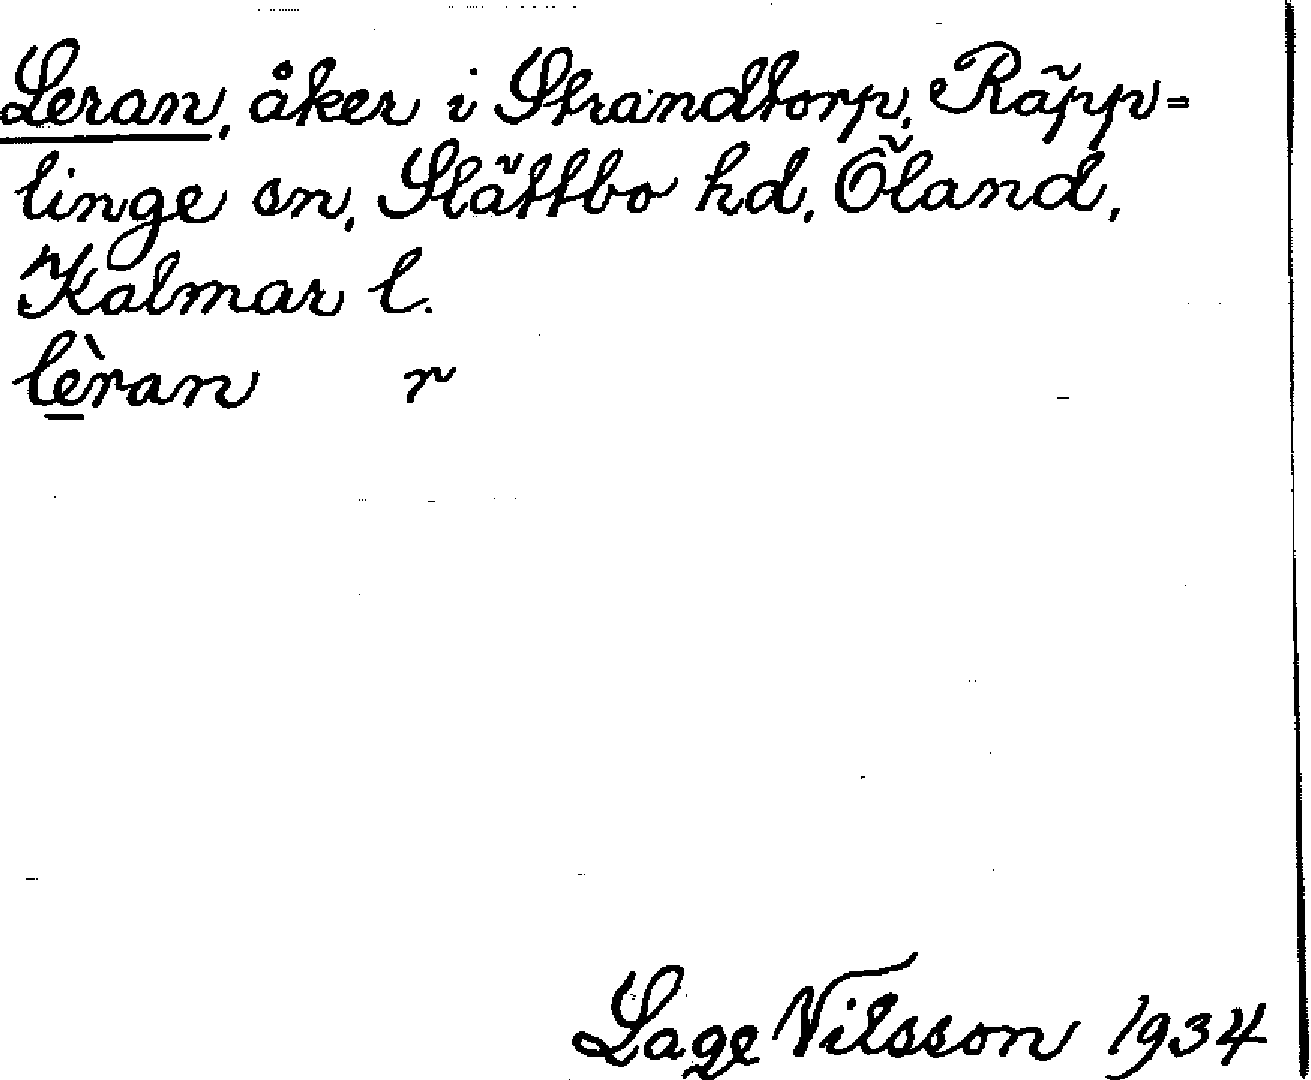 Leran, åker i Strandtorp, Räpp-
linge sn, Slättbo hd, Öland,
Kalmar l.
lèran r
Lage Nilsson 1934